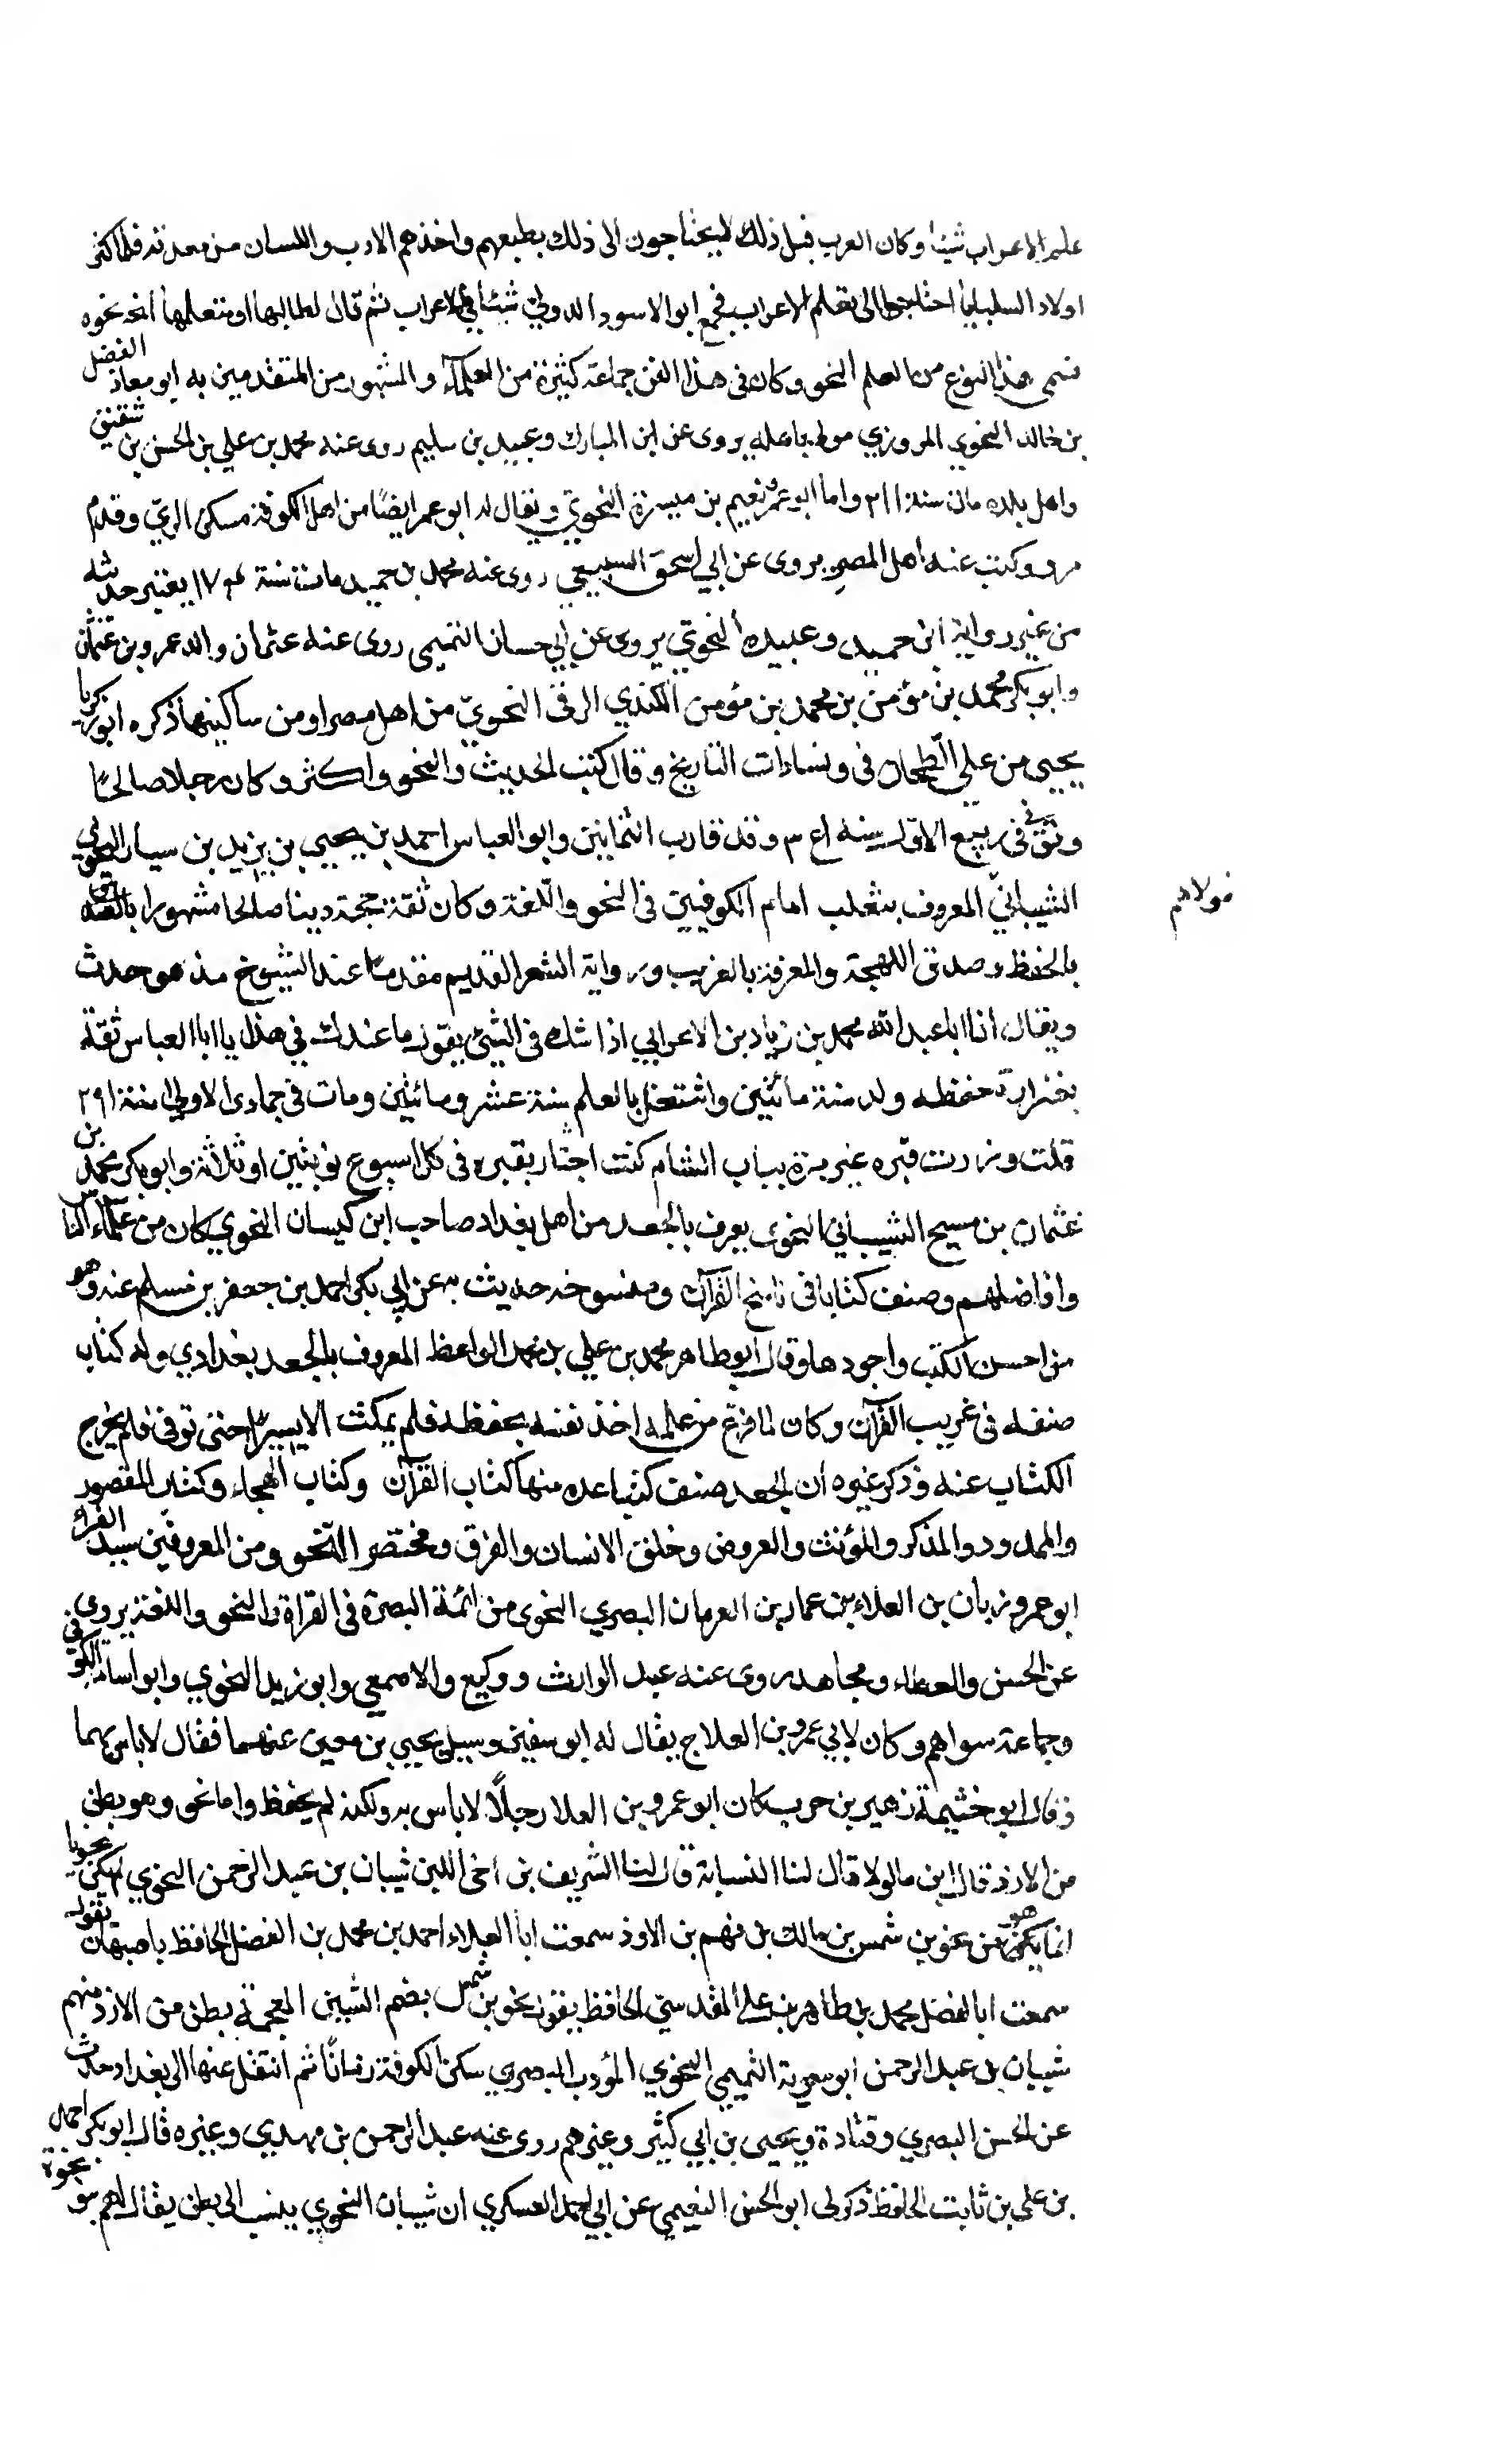 علم الاعراب شيئا وكان العرب قبل ذلك لا يحتاجون الى ذلك بطبعهم واخذهم الادب واللسان من معدنه فلما كثر
اولاد السبايا احتاجوا الى تعلم الاعراب فجمع ابو الاسود الدولي شيئا في الاعراب ثم قال لطالبها او متعلمها انحه نحوه
فسمى هذا النوع من العلم النحو وكان في هذا الفن جماعة كثيرة من العلماء والمشهور من المتقدمين به ابو معاذ الفضل
بن خالد النحوي المروزي مولى باهله يروى عن ابن المبارك وعبيد بن سليم روى عنه محمد بن علي بن الحسن بن شقيق
واهل بلده مات سنة ٢١١ واما ابو عمر نعيم بن ميسرة النحوي ويقال له ابو عمر ايضًا من اهل الكوفة سكن الري وقدم
مرو وكتب عنه اهل المصر يروى عن ابي اسحق السبيعي روى عنه محمد بن حميد مات سنة ١٧٤ يعتبر حديثه
من غير رواية ابن حميد وعبيده النحوي يروى عن ابي حسان التميمي روى عنه عثمان والد عمرو بن عثمان
وابو بكر محمد بن مؤمن بن محمد بن مؤمن الكندي الرقي النحوي من اهل مصر او من ساكنيها ذكره ابو زكريا
يحيى من علي الطحان في التاريخ وقال كتب الحديث والنحو واكثر وكان رجلا صالحًا
وتوفي في ربيع الاول سنه وقد قارب الثمانين وابو العباس احمد بن يحيى بن يزيد بن سيار النحوي
الشيباني المعروف بثعلب امام الكوفيين في النحو واللغة وكان ثقة حجة دينا صالحا مشهورا
مولاهم
بالحفظ وصدق اللهجة والمعرفة بالغريب ورواية الشعر القديم مقدمًا عند الشيوخ مذ هو حدث
ويقال ان ابا عبد الله محمد بن زياد بن الاعرابي اذا شك في الشئ يقول ما عندك في هذا يا ابا العباس ثقة
بغزارة حفظه ولد سنة مائتين واشتغل بالعلم سنة عشر ومائتين ومات في جمادى الاولي سنة ٢٩١
قلت وزرت قبره غير مرة بباب الشام كنت اجتاز بقبره في كل اسبوع نوبتين او ثلاثة وابو بكر محمد بن
عثمان بن مسيح الشيباني النحوى يعرف بالجعد من اهل بغداد صاحب ابن كيسان النحوي كان من علماء الناس
وافاضلهم وصنف كتابا في ناسخ القرآن ومنسوخه حديث به عن ابي بكر احمد بن جعفر بن مسلم عنه وهو
من احسن الكتب واجودها وقال ابو طاهر محمد بن علي بن محمد الواعظ المعروف بالجعد بغدادي وله كتاب
صنفه في غريب القرآن وكان لما فرغ من عمله اخذ نفسه بحفظه فلم يمكث الا يسيرًا حتى توفي فلم يخرج
الكتاب عنه وذكر غيره ان الجعد صنف كتبا عده منها كتاب القرآن وكتاب الهجاء وكتاب المقصور
والممدود والمذكر والمؤنث والعروض وخلق الانسان والفرق ومختصر النحو ومن المعروفين سيد القراء
ابو عمرو زبان بن العلاء بن عمار بن العريان البصري النحوى من ائمة البصرة في القراة والنحو واللغة يروى
عن الحسن والعطاء ومجاهد روى عنه عبد الوارث ووكيع والاصمعي وابو زيد النحوي وابو اسامة الكوفي
وجماعة سواهم وكان لابي عمرو بن العلا اخ يقال له ابو سفين وسيل يحيى بن معين عنهما فقال لا باس بهما
وقال ابو خيثمة زهير بن حرب كان ابو عمرو بن العلا رجلًا لا باس به ولكنه لم يحفظ واما نحو وهو بطن
من الازد قال ابن ماكولا قال لنا النسابة قال لنا الشريف بن اخي اللبن شيبان بن عبد الرحمن النحوي لم يكن نحويا
انما يكون هو من نحو بن شمس بن مالك بن فهم بن الازد سمعت ابا العلاء احمد بن محمد بن الفضل الحافظ باصبهان يقول
سمعت ابا الفضل محمد بن طاهر بن علي المقدسي الحافظ يقول نحو بن شمس بضم الشين المعجمة بطن من الازد منهم
شيبان بن عبد الرحمن ابو معوية التميمي النحوي المؤدب البصري سكن الكوفة زمانًا ثم انتقل عنها الى بغداد حدث
عن الحسن البصري وقتادة ويحيى بن ابي كثير وغيرهم روى عنه عبد الرحمن بن مهدي وغيره قال ابو بكر احمد
بن علي بن ثابت الحافظ ذكر لي ابو الحسن النعيمي عن ابي احمد العسكري ان شيبان النحوي ينسب الى بطن يقال لهم بنو نحوة